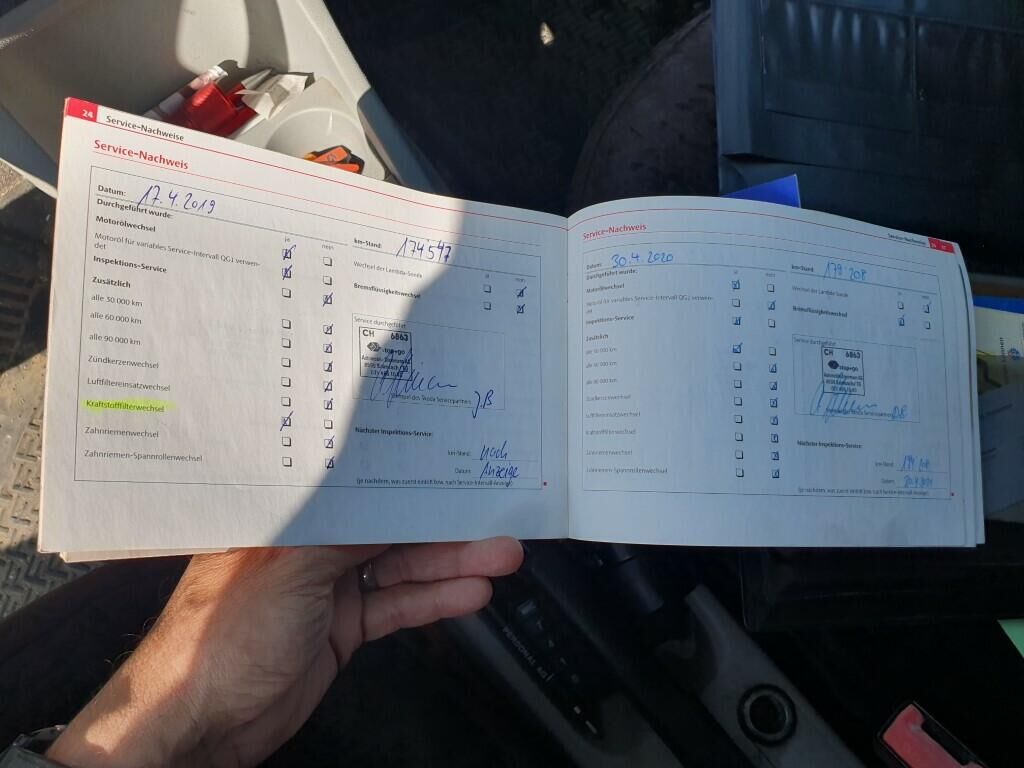 24 Service-Nachweise
Service-Nachweis
Datum: 17.4.2019
Durchgeführt wurde:
ja nein
Motorölwechsel
Motoröl für variables Service-Intervall QG1 verwen-
det
Inspektions-Service
Zusätzlich
alle 30 000 km
alle 60 000 km
alle 90 000 km
Zündkerzenwechsel
Luftfiltereinsatzwechsel
Kraftstofffilterwechsel
Zahnriemenwechsel
Zahnriemen-Spannrollenwechsel
km-Stand: 174'547
ja nein
Wechsel der Lambda-Sonde
Bremsflüssigkeitswechsel
Service durchgeführt
CH 6863
stop+go
Stempel des Škoda Servicepartners
Nächster Inspektions-Service:
km-Stand: nach
Datum: Anzeige
(je nachdem, was zuerst eintritt bzw. nach Service-Intervall-Anzeige)
Service-Nachweise
Service-Nachweis
Datum: 30.4.2020
Durchgeführt wurde:
ja nein
Motorölwechsel
Motoröl für variables Service-Intervall QG1 verwen-
det
Inspektions-Service
Zusätzlich
alle 30 000 km
alle 60 000 km
alle 90 000 km
Zündkerzenwechsel
Luftfiltereinsatzwechsel
Kraftstofffilterwechsel
Zahnriemenwechsel
Zahnriemen-Spannrollenwechsel
km-Stand: 179'208
ja nein
Wechsel der Lambda-Sonde
Bremsflüssigkeitswechsel
Service durchgeführt
CH 6863
stop+go
Nächster Inspektions-Service:
km-Stand:
Datum:
(je nachdem, was zuerst eintritt bzw. nach Service-Intervall-Anzeige)
PERSONAL